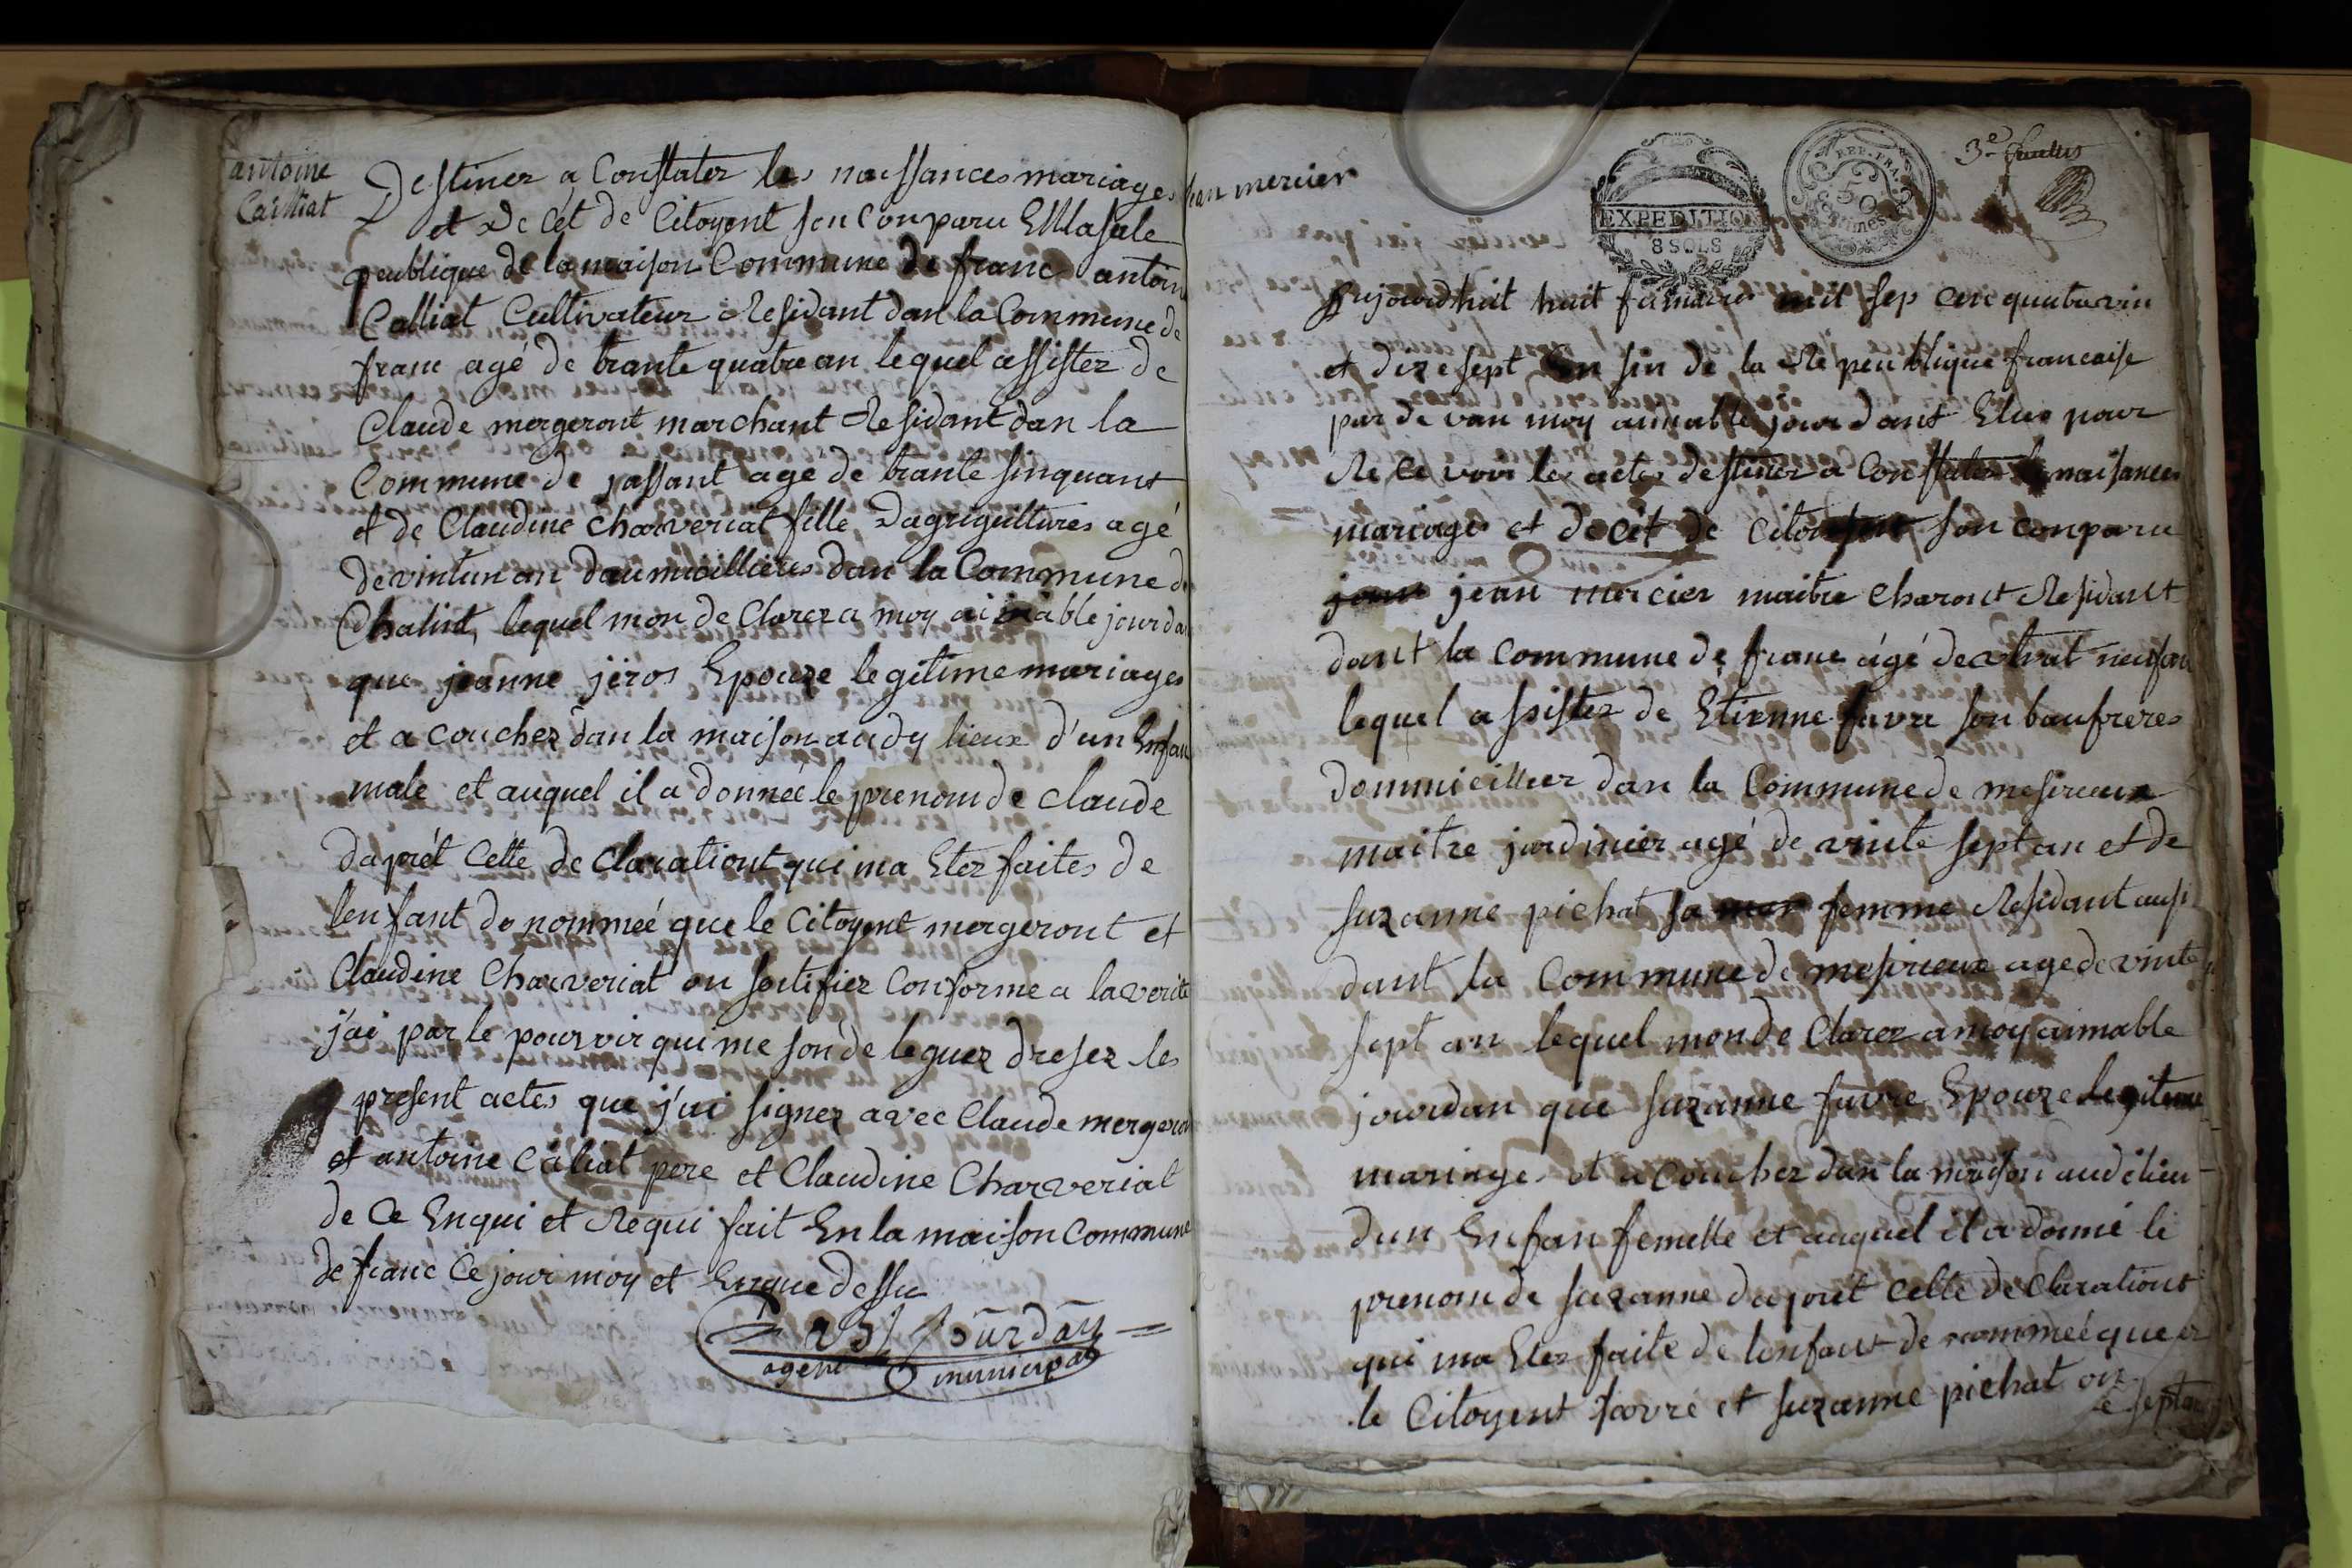 antoine
Calliat
Destiner a Constater les naissances mariages
et de cét de Citoyent son Conparu En la sale
peublique de la maison Commune de franc antoine
Calliat Cultivateur Residant dan la Commune de
franc agé de trante quatre an lequel assister de
Claude mergeront marchant Residant dan la
Commune de jassant age de trante sinquant
et de Claudine Charveriat fille Dagrigultures agé
de vintun an daumicillieés dan la Commune de
Chalint, lequel mon de Clarez a moy aimable jourdan
que jeanne jéros Epouze legitime mariages
et a couchez dan la maison audy lieux d'un Enfan
male et auquel il a donneé le prenom de claude
daprét Cette de Clarationt qui ma Etez faites de
lenfant de nommeé que le Citoyent mergeront et
Claudine Charveriat on sertifiez Conforme a la verité
j'ai par le pourvoir qui me son de leguez dresez les
present actes que j'ai signez avec Claude mergeront
et antoine Caliat pere et Claudine Charveriat
de Ce Enqui et Requi fait En la maison Commune
de franc Ce jour moy et Enque dessu
Jourdan
agent municipal
jean mercier
EXPEDITION
8 SOLS
REP. FRA.
50
centimes
3e feuillet
Aujourdhuit huit frimaire mil sep cen quatre vin
et dix e sept En sin de la Re peublique francaise
par de van moy aimable jourdant Elue pour
Re Ce voir les actes destiner a Constater les naisances
mariages et decét de Citoyent son conparu
jean mercier maitre Charont Residant
dant la commune de franc ágé de neufan
lequel assistez de Etienne favre son baufreres
dommicillier dan la Commune de mesirieux
maitre jardinier agé de vinte sept an et de
suzanne pichat sa femme Residant ausi
dant la Commune de mesirieux age de vinte
sept an lequel mon de Clarez a moy aimable
jourdan que suzanne favre Epouze legitime
mariages et a couchez dan la maison audélieu
dun Enfan femelle et auquel il a donné le
prenom de suzanne daprét cette de Clarationt
qui ma Etez faite de lenfant de nommeé que
le Citoyent favre et suzanne pichat on